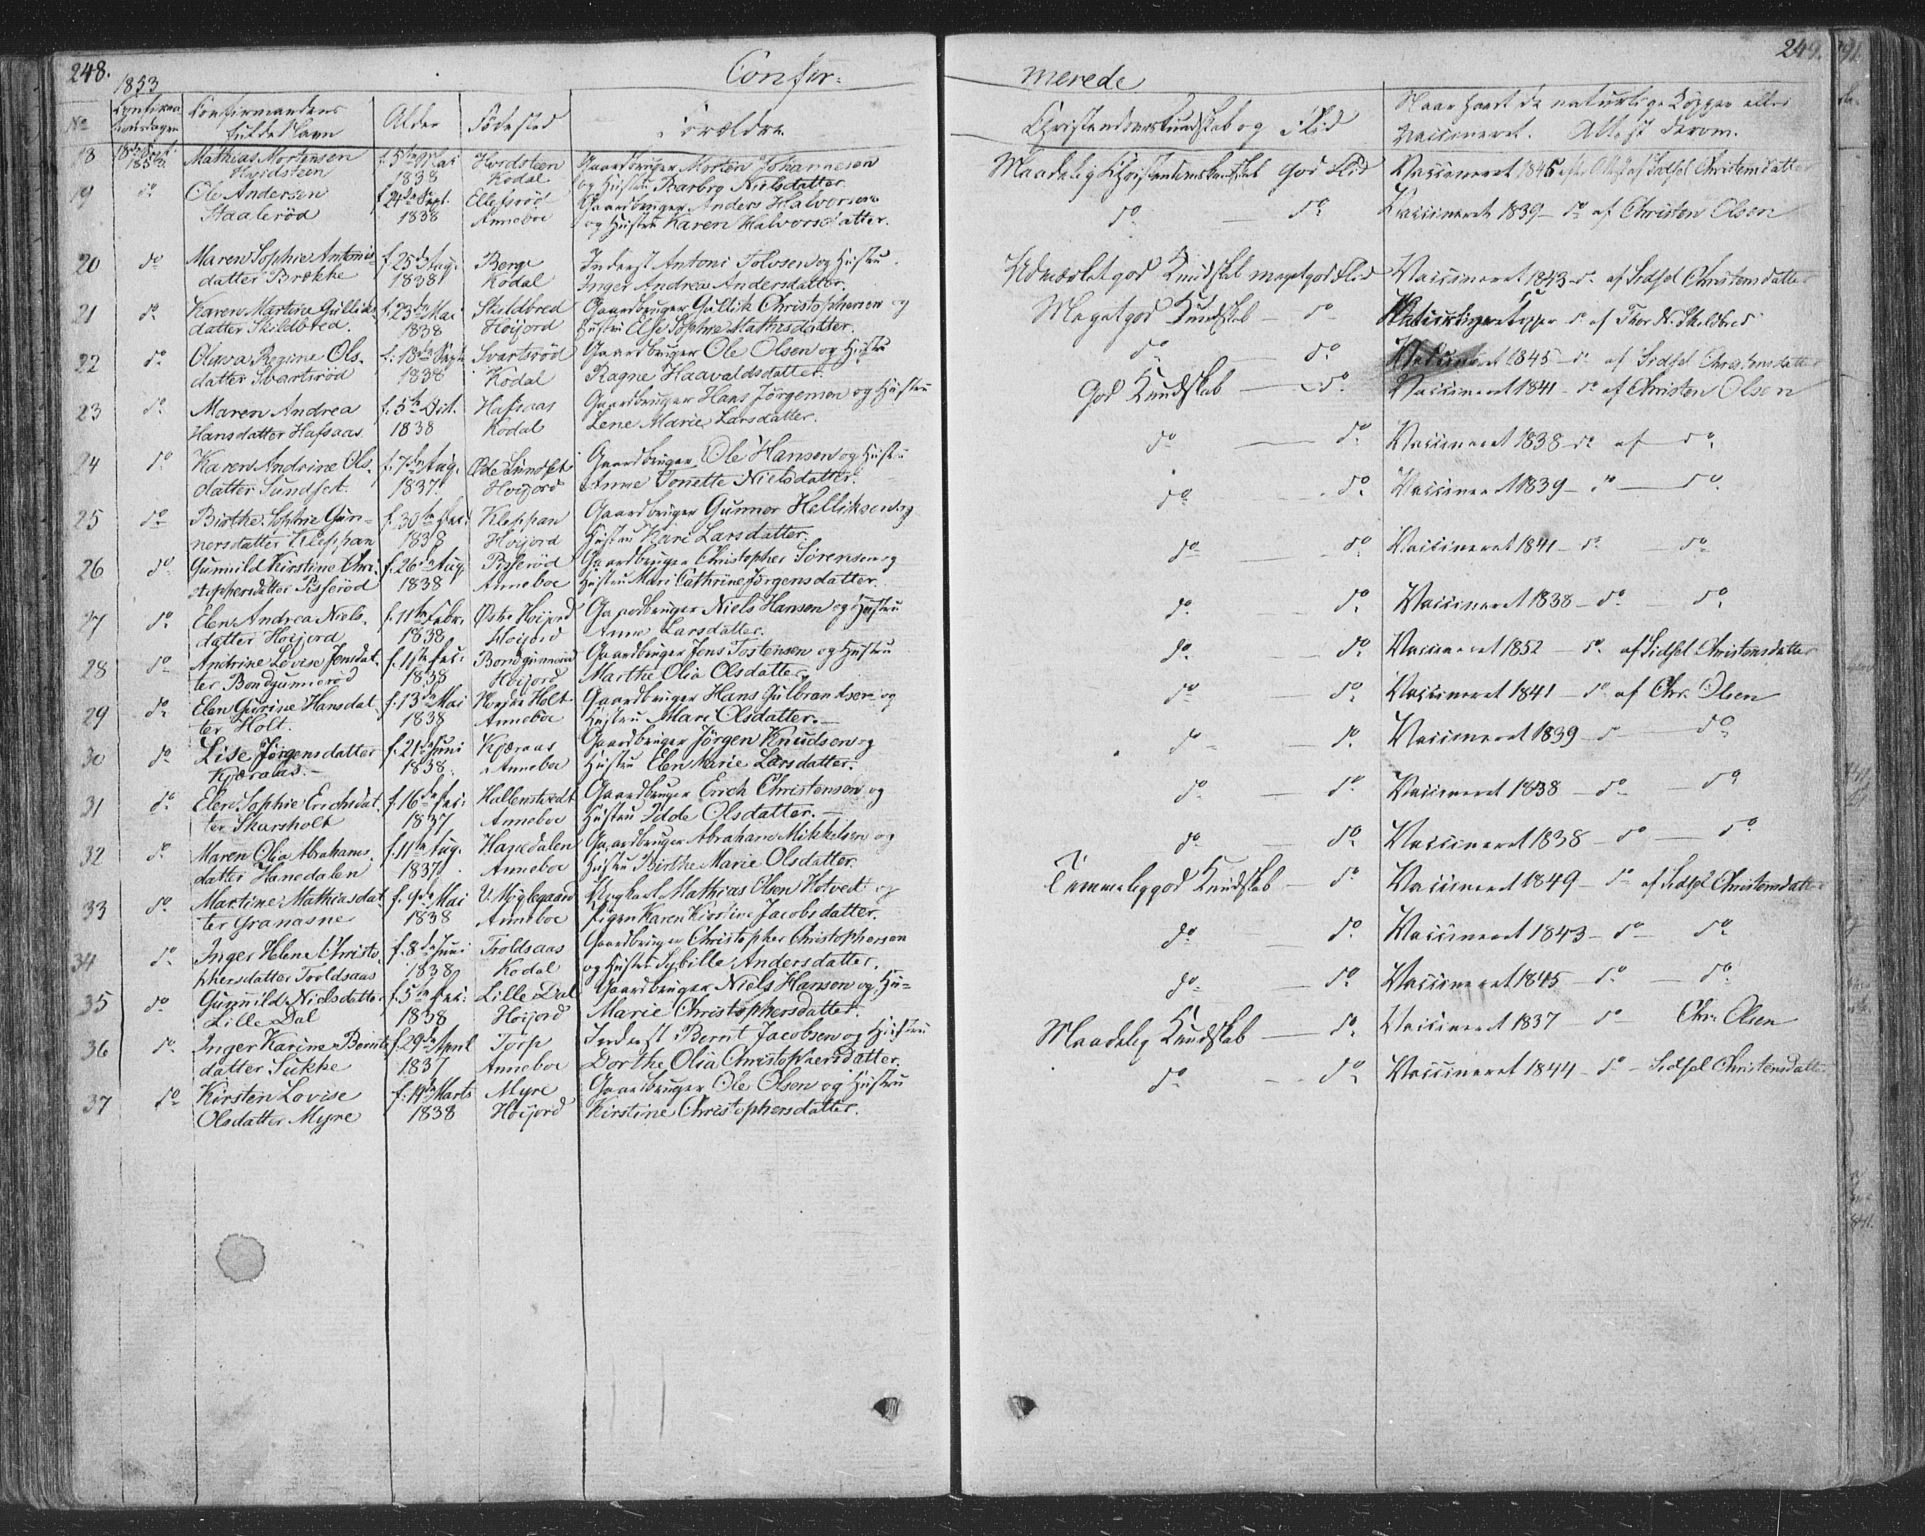 248.
1853
Confir-
No
Confirma-
tionsdagen
Confirmandens
fulde Navn
Alder
Fødested
Forældre
18
18de Sept.
1853
Mathias Mortensen
Hvidsteen
f. 5te Mai
1838
Hvidsteen
Kodal
Gaardbruger Morten Johannesen
og Hustru Barbro Nielsdatter
19
do
Ole Andersen
Staalerød
f. 24de Sept.
1838
Ellefsrød
Anneboe
Gaardbruger Anders Halvorsen
og Hustru Karen Halvorsdatter.
20
do
Maren Sophie Antonis-
datter Brække
f. 25de Aug.
1838
Berge
Kodal
Inderst Antoni Tolvsen og Hustru
Inger Andrea Andersdatter.
21
do
Karen Martine Gulliks-
datter Skildbred.
f. 23de Mai
1838
Skildbred
Høijord
Gaardbruger Gullik Christophersen og
Hustru Else Sophie Mathisdatter.
22
do
Olava Regine Ols-
datter Svartsrød
f. 18de Sept.
1838
Svartsrød
Kodal
Gaardbruger Ole Olsen og Hustru
Ragne Haavaldsdatter.
23
do
Maren Andrea
Hansdatter Hafsaas
f. 5te Oct.
1838
Hafsaas
Kodal
Gaardbruger Hans Jørgensen og Hustru
Lene Marie Larsdatter.
24
do
Karen Andrine Ols-
datter Sundset.
f. 7de Aug.
1837.
Øde Sundset
Høijord
Gaardbruger Ole Hansen og Hustru
Anne Tonette Nielsdatter.
25
do
Birthe Sophie Gun-
nersdatter Kleppan
f. 30te Jan:
1838
Kleppan
Høijord
Gaardbruger Gunner Helliksen og
Hustru Kari Larsdatter.
26
do
Gunnild Kirstine Chri-
stophersdatter Pisserød
f. 26de Aug
1838
Pisserød
Anneboe
Gaardbruger Christopher Sørensen og
Hustru Mari Cathrine Jørgensdatter.
27
do
Elen Andrea Niels-
datter Høijord
f. 11te Febr.
1838
Østre Høijord
Høijord
Gaardbruger Niels Hansen og Hustru
Anne Larsdatter.
28
do
Andrine Lovise Jensdat-
ter Bondgunnerød
f. 11te Jan:
1838
Bondgunnerød
Høijord
Gaardbruger Jens Tostensen og Hustru
Marthe Olia Olsdatter.
29
do
Elen Gurine Hansdat-
ter Holt.
f. 13de Mai
1838
Nordre Holt
Anneboe
Gaardbruger Hans Gulbrandsen og
Hustru Mari Olsdatter.
30
do
Lise Jørgensdatter
Kjæraas.
f. 21de Juni
1838.
Kjæraas
Anneboe
Gaardbruger Jørgen Knudsen og
Hustru Elen Marie Larsdatter.
31
do
Elen Sophie Erichsdat-
ter Skarsholt
f. 16de Jan:
1837
Hallenstvedt
Anneboe
Gaardbruger Erich Christensen og
Hustru Idde Olsdatter.
32
do
Maren Olia Abrahams-
datter Hanedalen
f. 11te Aug.
1837.
Hanedalen
Anneboe
Gaardbruger Abraham Mikkelsen og
Hustru Birthe Marie Olsdatter.
33
do
Martine Mathiasdat-
ter Granasne
f. 9de Mai
1838
V. Møglegaard
Anneboe
Ungkarl Mathias Olsen Hotvedt og
Pigen Karen Kirstine Jacobsdatter.
34
do
Inger Helene Christo-
phersdatter Troldsaas
f. 8de Juni
1838
Troldsaas
Kodal
Gaardbruger Christopher Christophersen
og Hustru Sybille Andersdatter.
35
do
Gunnild Nielsdatter
Lille Dal
f. 5te Jan:
1838
Lille Dal
Høijord
Gaardbruger Niels Hansen og Hu-
Marie Christophersdatter.
36
do
Inger Karine Bernts-
datter Sukke
f. 29de April
1837
Torp
Anneboe
Inderst Bernt Jacobsen og Hustru
Dorthe Olia Christophersdatter.
37
do
Kirsten Lovise
Olsdatter Myre
f. 19de Marts
1838
Myre
Høijord
Gaardbruger Ole Olsen og Hustru
Kirstine Christophersdatter.
merede
249.
Christendomskundskab og Flid
Naar havt de naturlige Kopper eller
vaccineret. Attest derom.
Maadelig Christendomskundskab god Flid
Vaccineret 1845 efter Attest af Sidsel Christensdatter
do — do
Vaccineret 1839 — do af Christen Olsen
Udmærket god Kundskab meget god Flid
Vaccineret 1843 do af Sidsel Christensdatter
Meget god Kundskab — do
Naturlige Kopper do af Thor N. Skeldbred
do — do
Vaccineret 1845 — do af Sidsel Christensdatter
God Kundskab — do
Vaccineret 1841 — do af Christen Olsen
do — do
Vaccineret 1838 — do af — do
do — do
Vaccineret 1839 — do — do
do — do
Vaccineret 1841 — do — do
do — do
Vaccineret 1838 — do — do
do — do
Vaccineret 1852 — do af Sidsel Christensdatter
do — do
Vaccineret 1841 — do af Chr. Olsen
do — do
Vaccineret 1839 — do — do
do — do
Vaccineret 1838 — do — do
do — do
Vaccineret 1838 — do — do
Temmelig god Kundskab — do
Vaccineret 1849 — do af Sidsel Christensdatter
do — do
Vaccineret 1843 — do — do
do — do
Vaccineret 1845 — do — do
Maadelig Kundskab — do
Vaccineret 1837 — do Chr. Olsen
do — do
Vaccineret 1844 — do — Sidsel Christensdatter